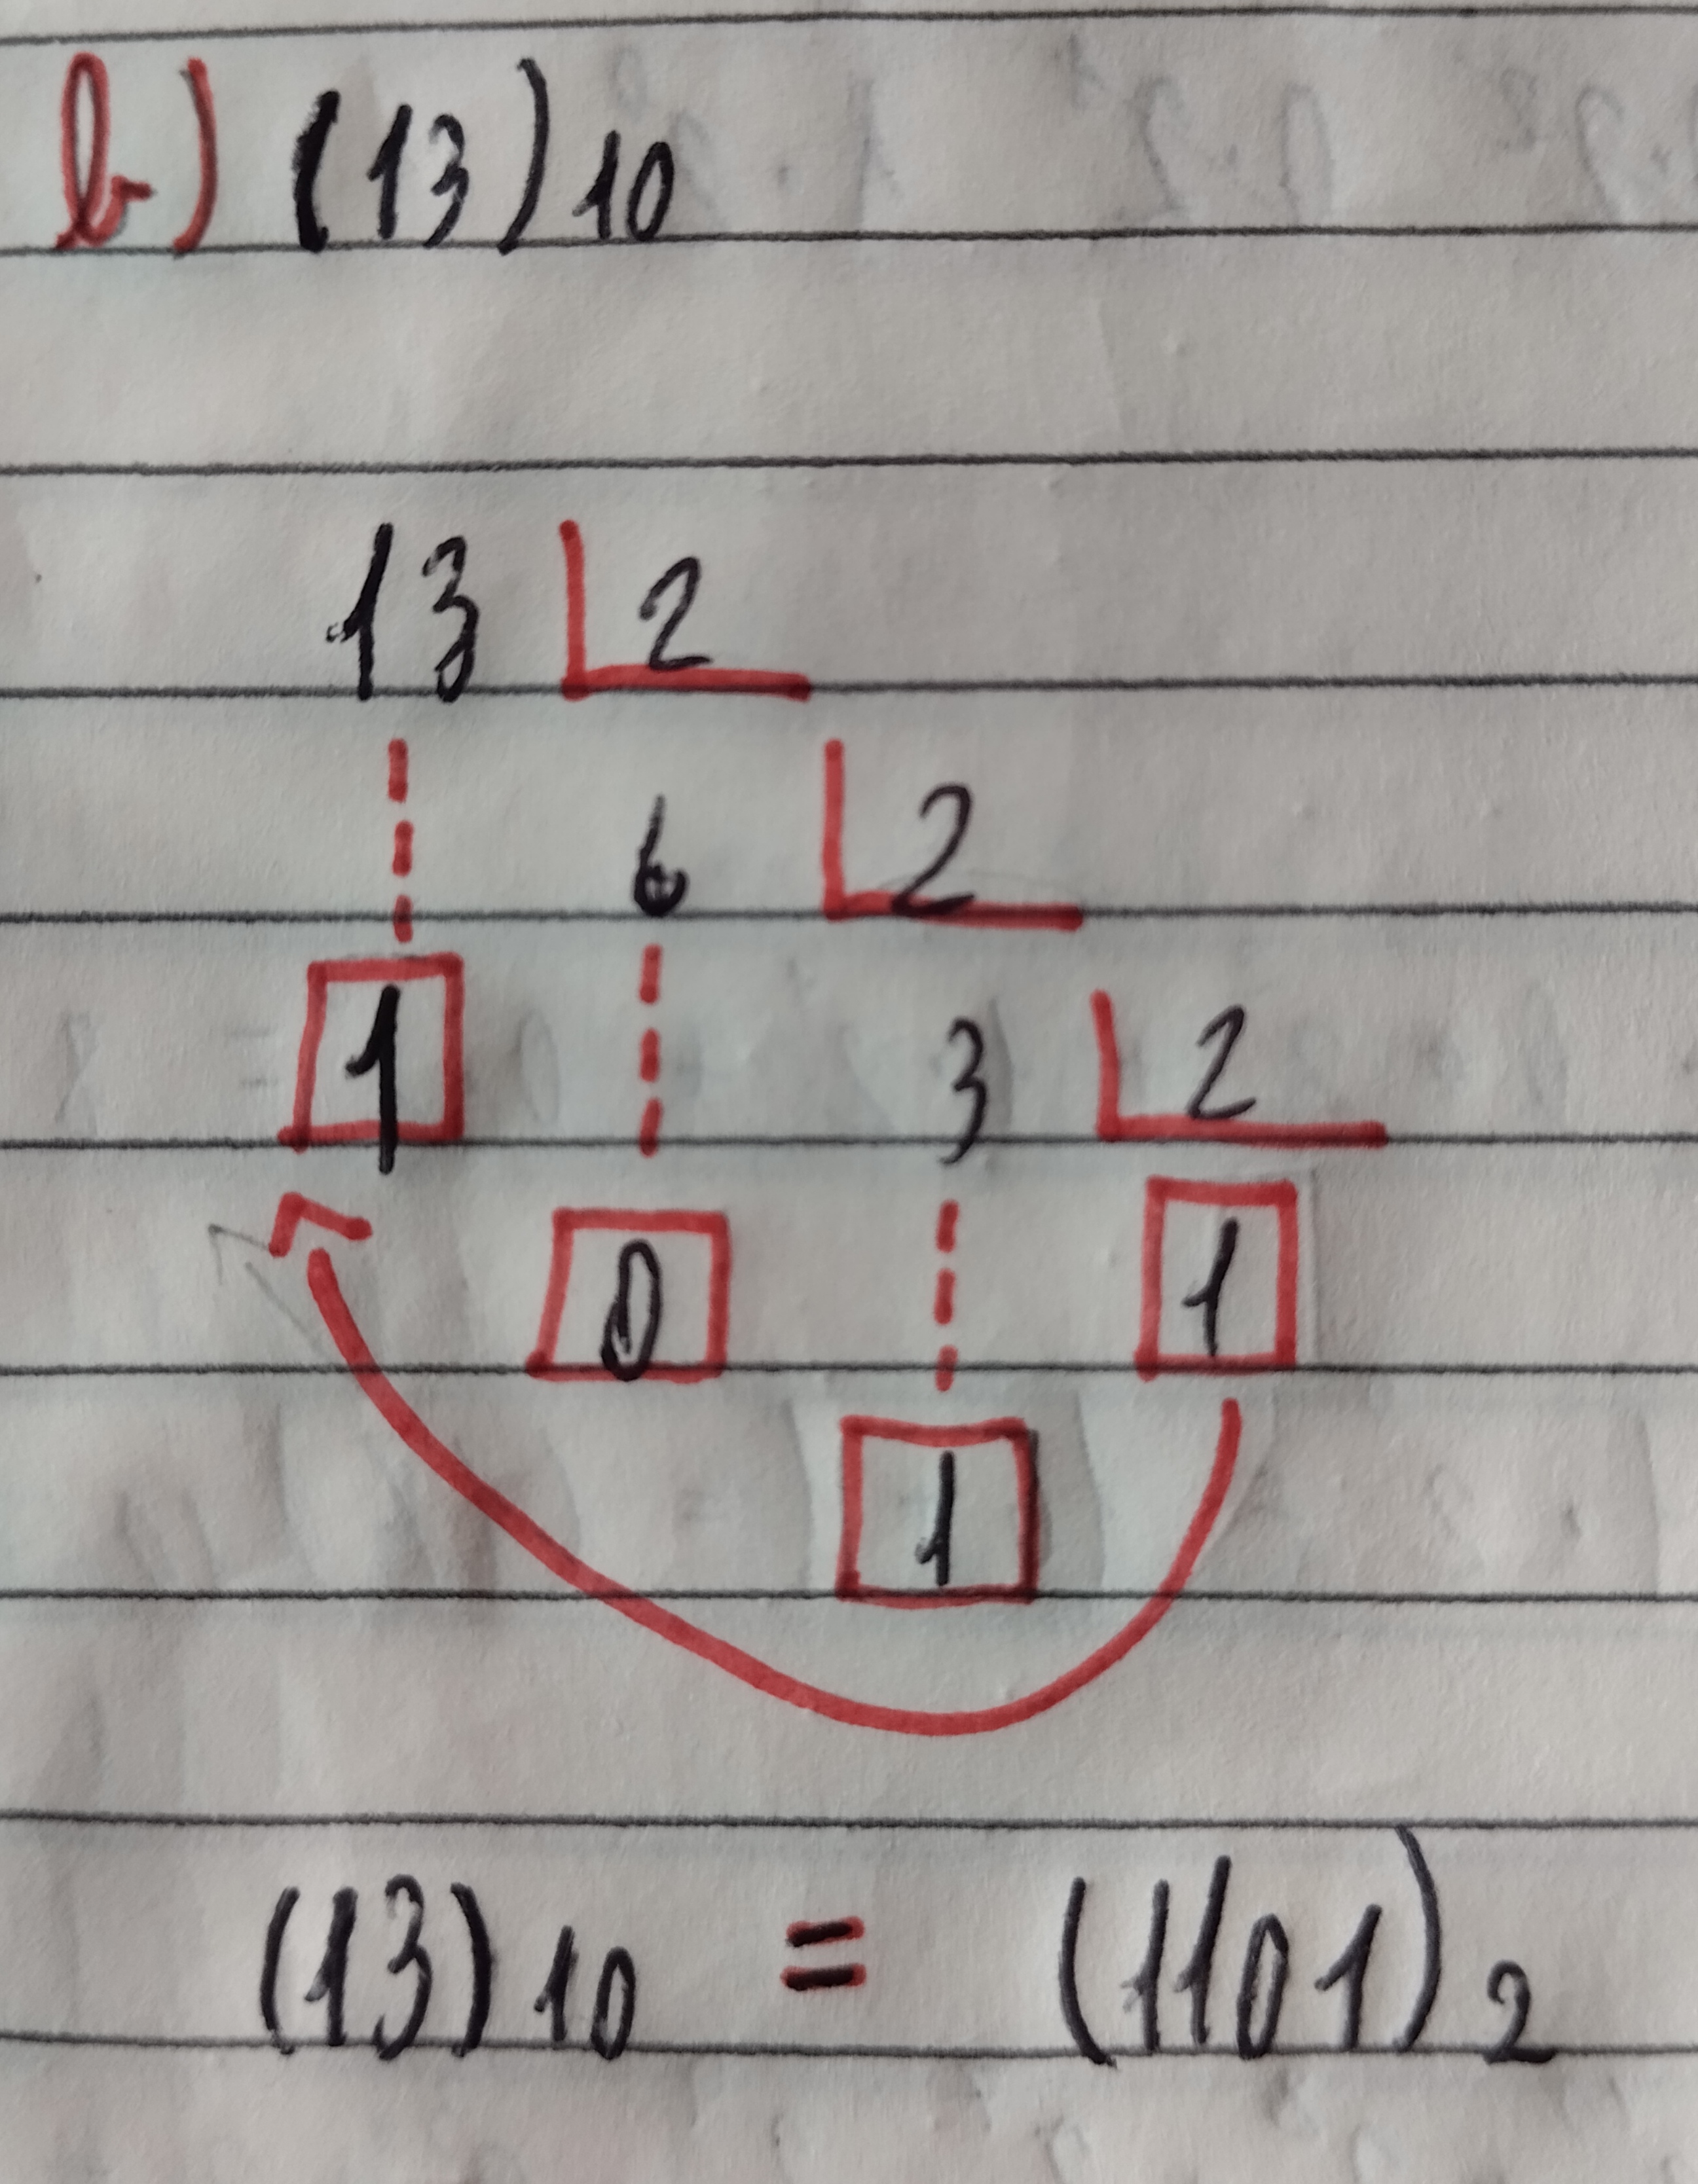 b) (13)10
13 2
6 2
1 3 2
0 1
1
(13)10 = (1101)2